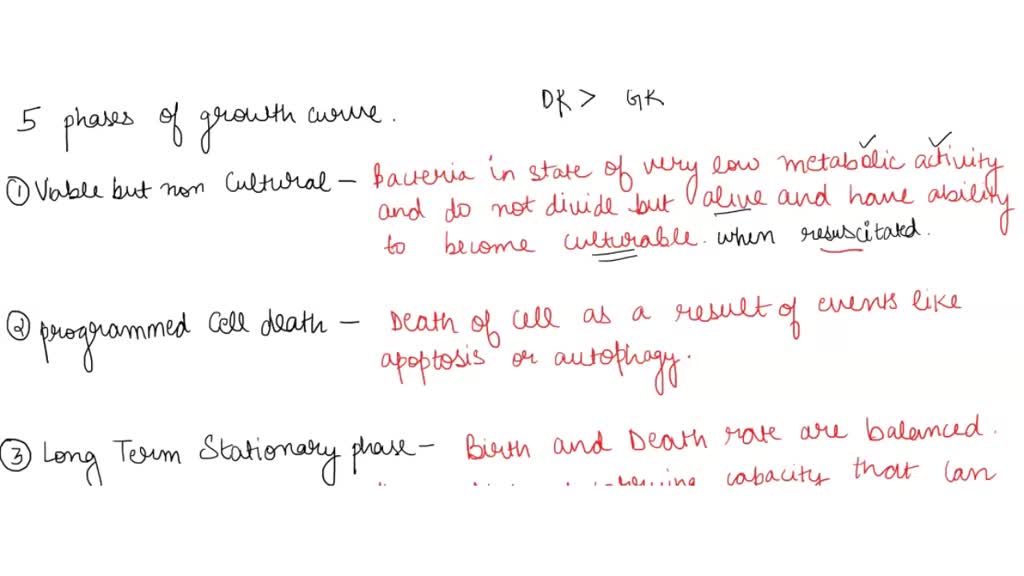 5 phases of growth curve.
DR > GR
① Viable but non Cultural – Bacteria in state of very low metabolic activity
and do not divide but alive and have ability
to become culturable when resuscitated.
② programmed Cell death – Death of cell as a result of events like
apoptosis or autophagy.
③ Long Term Stationary phase – Birth and Death rate are balanced.
capacity that can